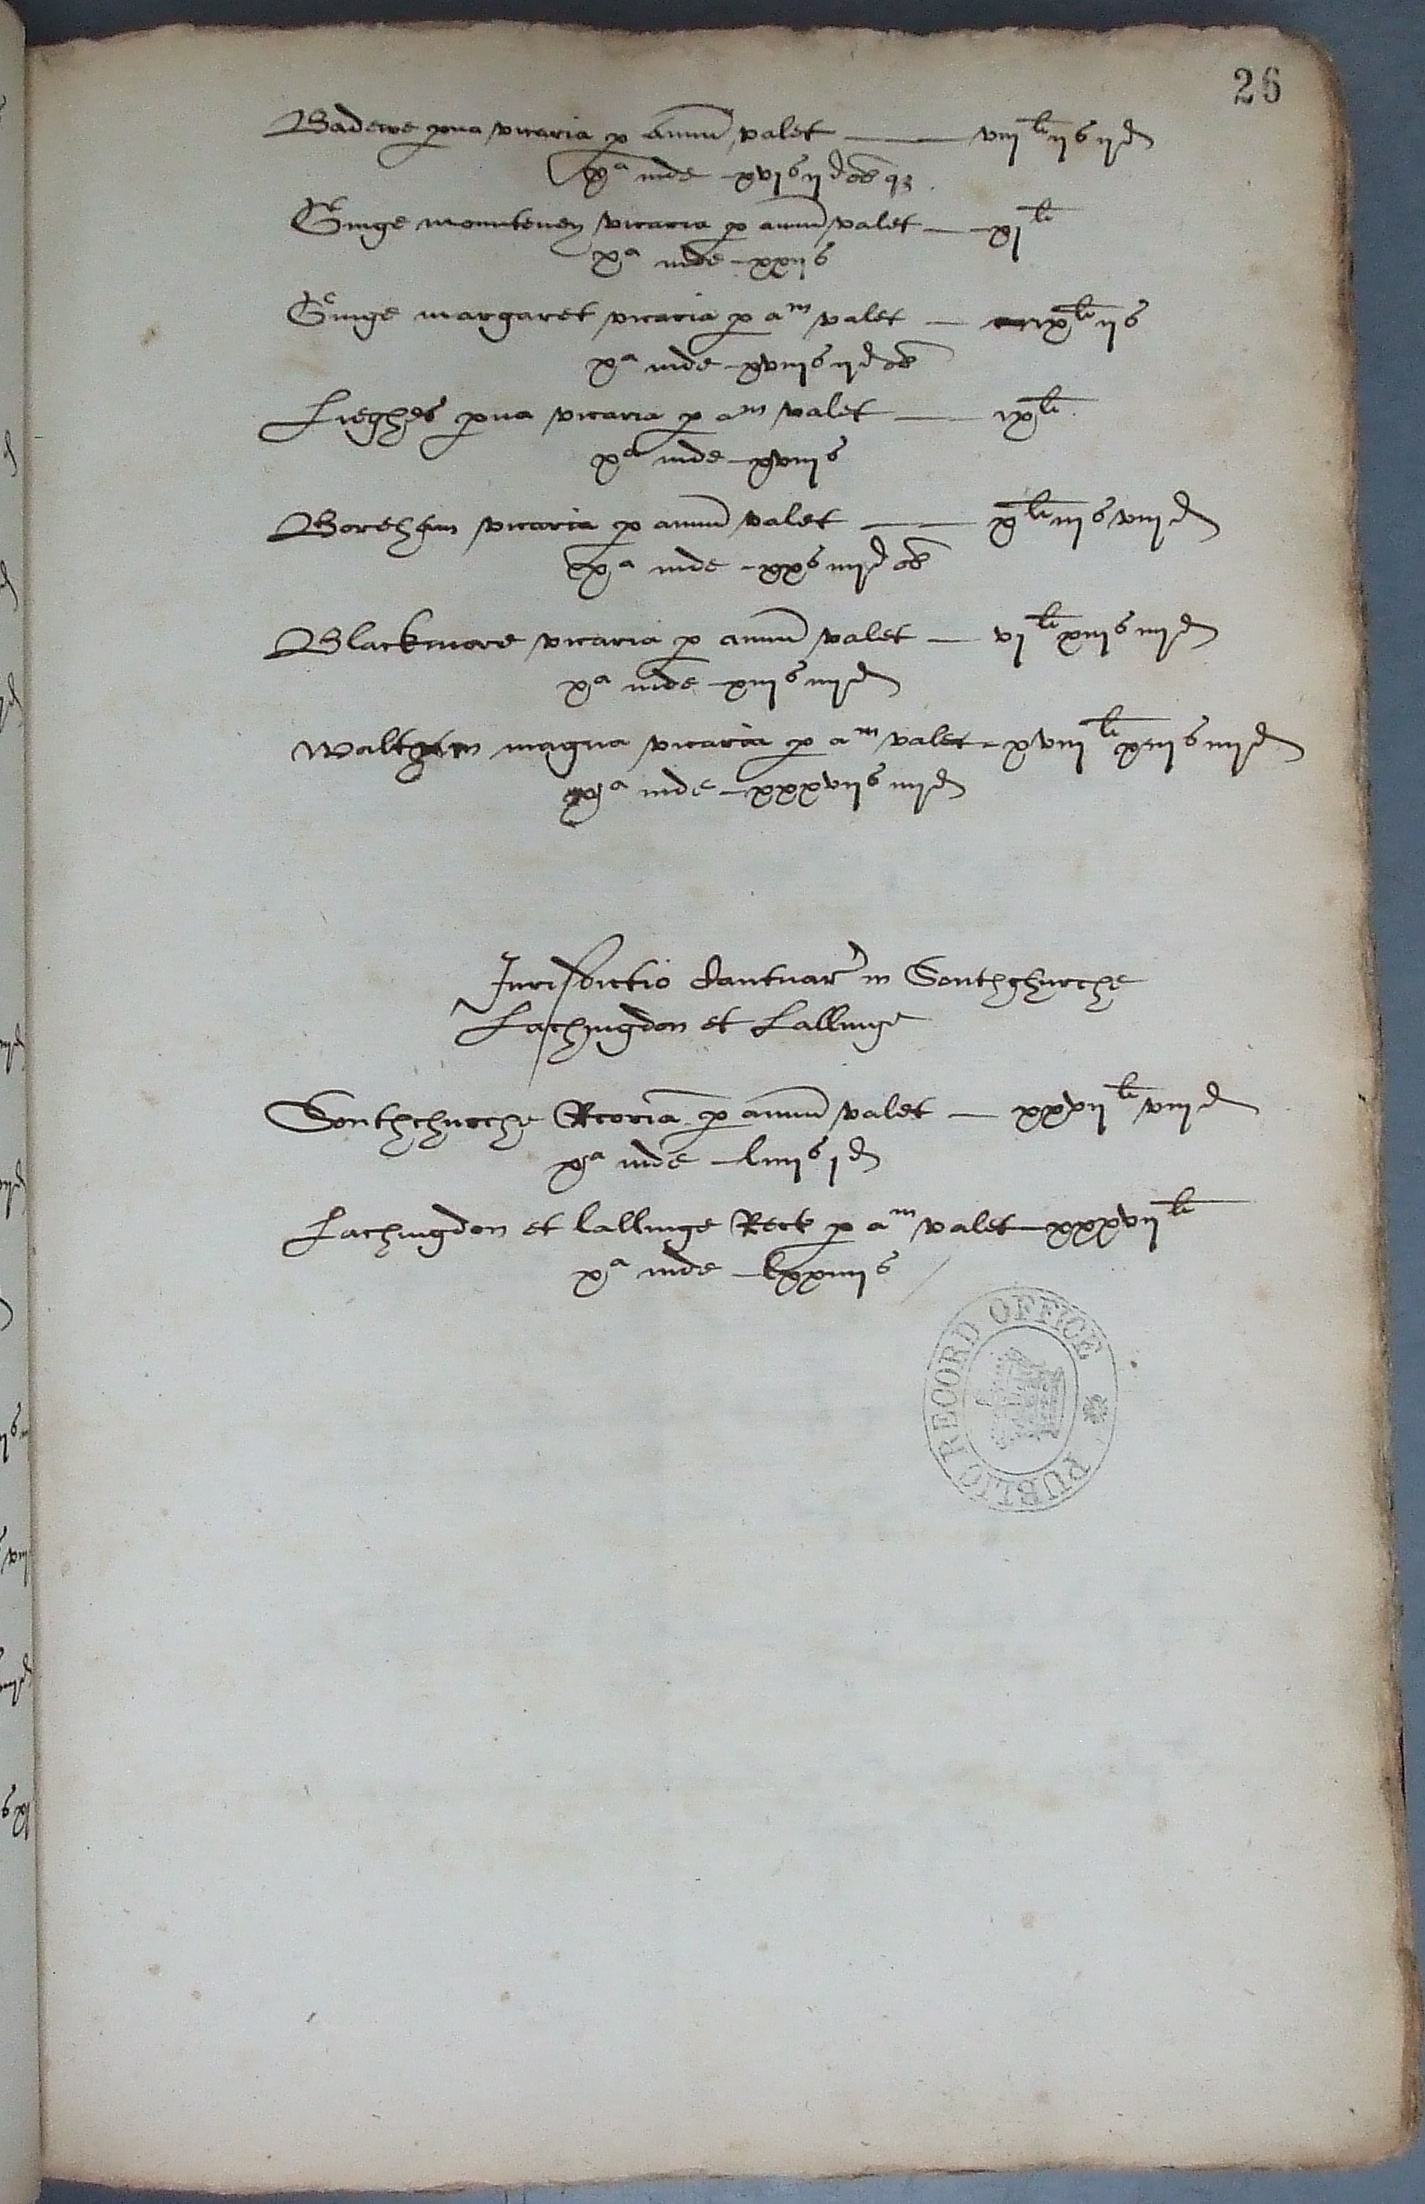 26
Badewe pva vicaria p annu valet — viij li ijs ijd
xa inde xvjs ijd ob qz
Ginge mounteney vicaria p annu valet — xj li
xa inde xxijs
Ginge margaret vicaria p am valet — ix li ijs
xa inde xviijs ijd ob
Lieghes pva vicaria p am valet — ix li
xa inde xviijs
Boreham vicaria p annu valet — x li iijs viijd
xa inde xxs iiijd ob
Blackmore vicaria p annu valet — vj li xiijs iiijd
xa inde xiijs iiijd
Waltham magna vicaria p am valet xviij li xiijs iiijd
xa inde xxxvijs iiijd
Jurisdictio Cantuar in Southchurche
Lachingdon et Lallinge
Southchurche Rcoria p annu valet — xxxij li viijd
xa inde liiijs jd
Lachingdon et lallinge Rect p am valet xxxvij li
xa inde lxxiiijs
PUBLIC RECORD OFFICE